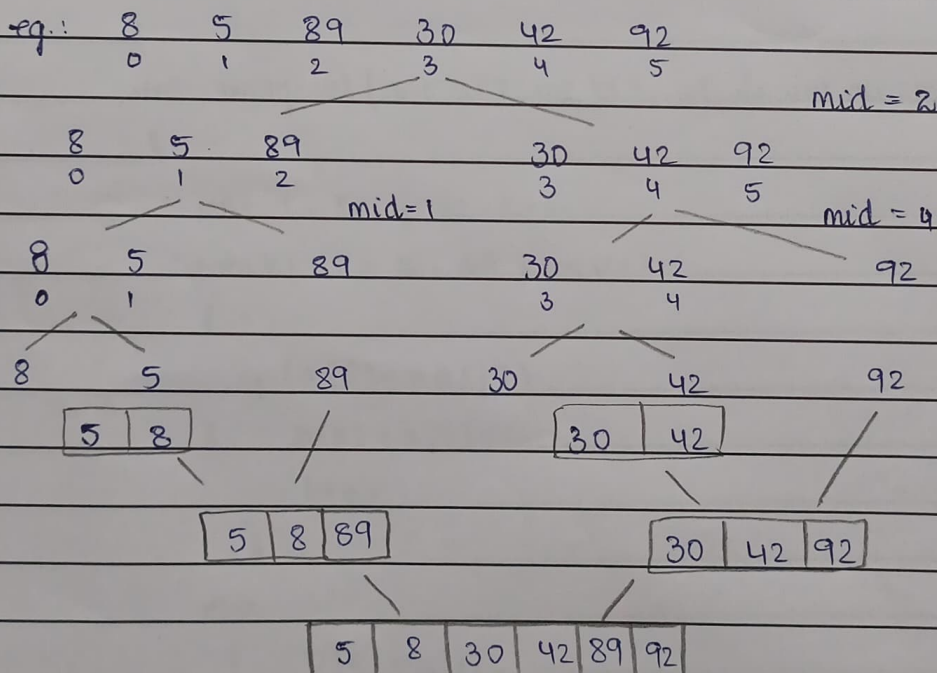 eg.: 8 5 89 30 42 92
0 1 2 3 4 5
mid = 2
8 5 89 30 42 92
0 1 2 3 4 5
mid=1 mid = 4
8 5 89 30 42 92
0 1 3 4
8 5 89 30 42 92
5 8 30 42
5 8 89 30 42 92
5 8 30 42 89 92